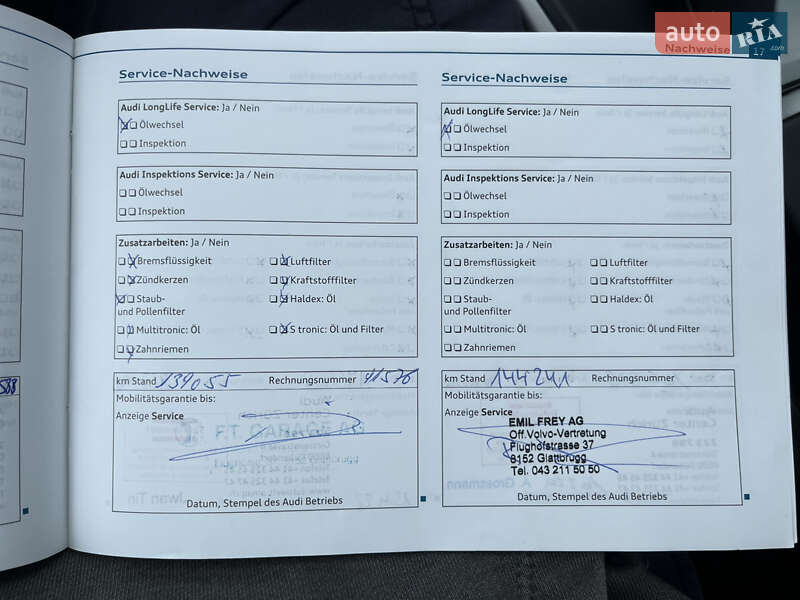 auto RIA .com
17
Nachweise
Service-Nachweise
Audi LongLife Service: Ja / Nein
Ölwechsel
Inspektion
Audi Inspektions Service: Ja / Nein
Ölwechsel
Inspektion
Zusatzarbeiten: Ja / Nein
Bremsflüssigkeit
Luftfilter
Zündkerzen
Kraftstofffilter
Staub-
und Pollenfilter
Haldex: Öl
Multitronic: Öl
S tronic: Öl und Filter
Zahnriemen
km Stand 139055 Rechnungsnummer 11576
Mobilitätsgarantie bis:
Anzeige Service
F.T. GARAGE AG
Datum, Stempel des Audi Betriebs
Service-Nachweise
Audi LongLife Service: Ja / Nein
Ölwechsel
Inspektion
Audi Inspektions Service: Ja / Nein
Ölwechsel
Inspektion
Zusatzarbeiten: Ja / Nein
Bremsflüssigkeit
Luftfilter
Zündkerzen
Kraftstofffilter
Staub-
und Pollenfilter
Haldex: Öl
Multitronic: Öl
S tronic: Öl und Filter
Zahnriemen
km Stand 144241 Rechnungsnummer
Mobilitätsgarantie bis:
Anzeige Service
EMIL FREY AG
Off.Volvo-Vertretung
Flughofstrasse 37
8152 Glattbrugg
Tel. 043 211 50 50
Datum, Stempel des Audi Betriebs